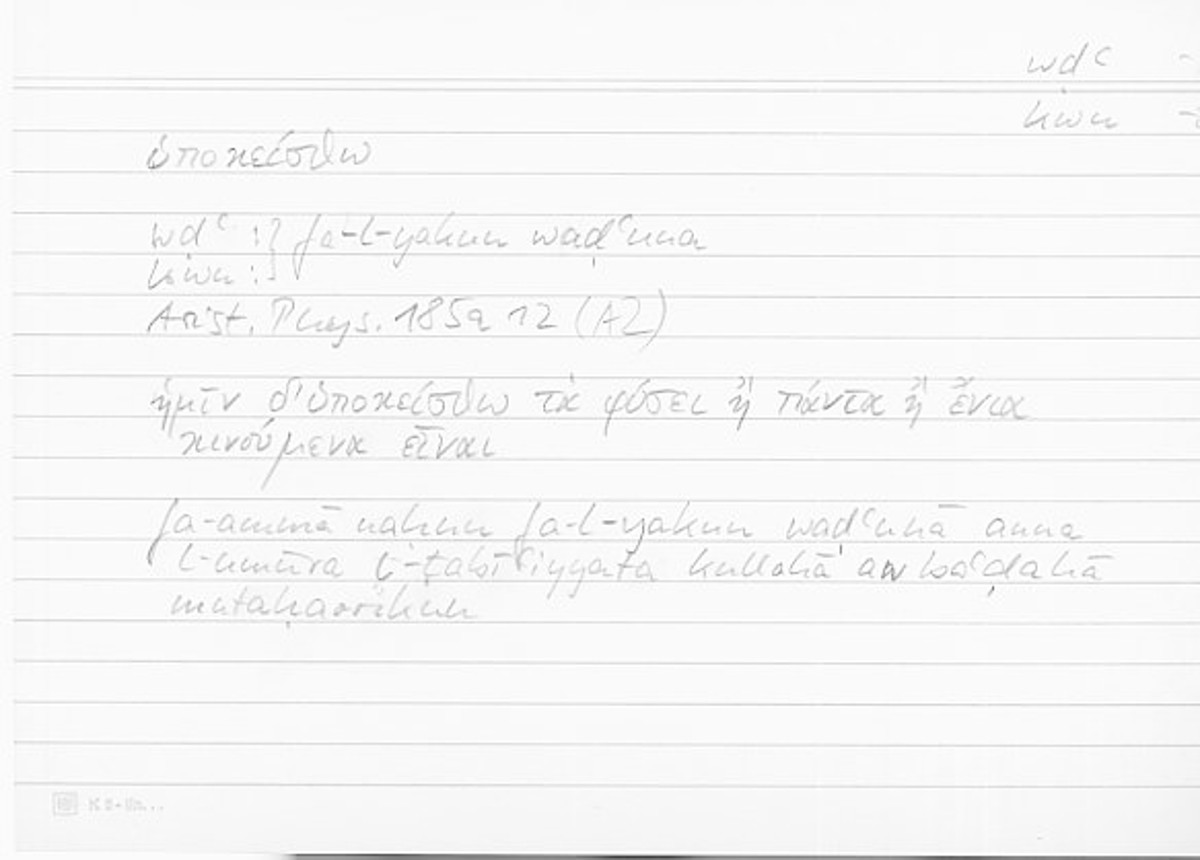 wḍʿ
kwn
ὑποκείσθω
wḍʿ :} fa-l-yakun waḍʿunā
kwn :
Arist. Phys. 185a 12 (A2)
ἡμῖν δ' ὑποκείσθω τὰ φύσει ἢ πάντα ἢ ἔνια
κινούμενα εἶναι
fa-ammā naḥnu fa-l-yakun waḍʿunā anna
l-umūra ṭ-ṭabīʿiyyata kullahā aw baʿḍahā
mutaḥarrikun